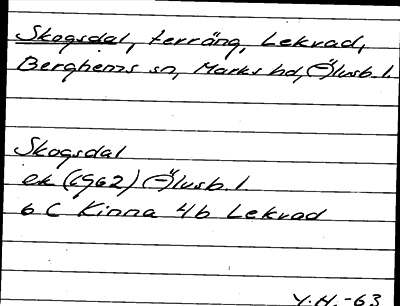 Skogsdal, terräng, Lekvad,
Berghems sn, Marks hd, Älvsb. l.
Skogsdal
ek (1962) Älvsb. l
6 C Kinna 4b Lekvad
Y.H. -63